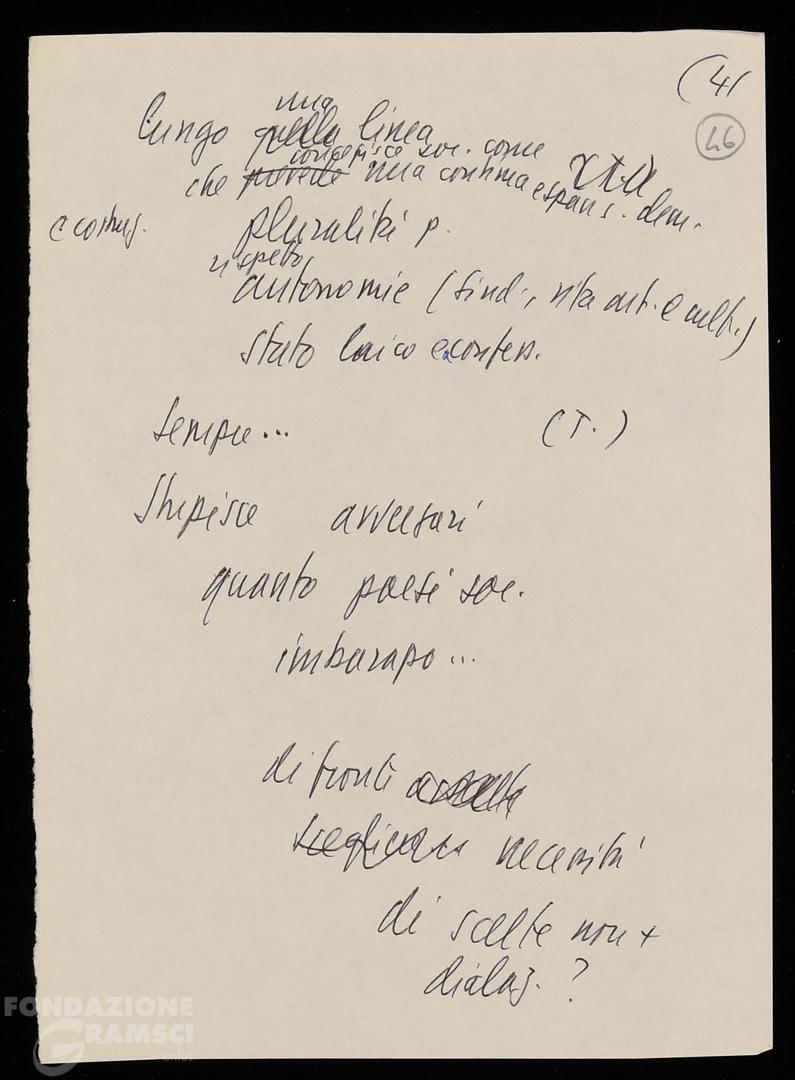 (41
46
una
lungo quella linea
concepisce soc. come
che prevede una continua espans. dem.
e costruz.
pluralità p.
rispetto
autonomie (sind., vita art. e cult.)
stato laico e
sempre... (T.)
Stupisce avversari
quanto paesi soc.
imbarazzo...
di fronte
necessità
di scelte non +
dialog. ?
FONDAZIONE
GRAMSCI
onlus